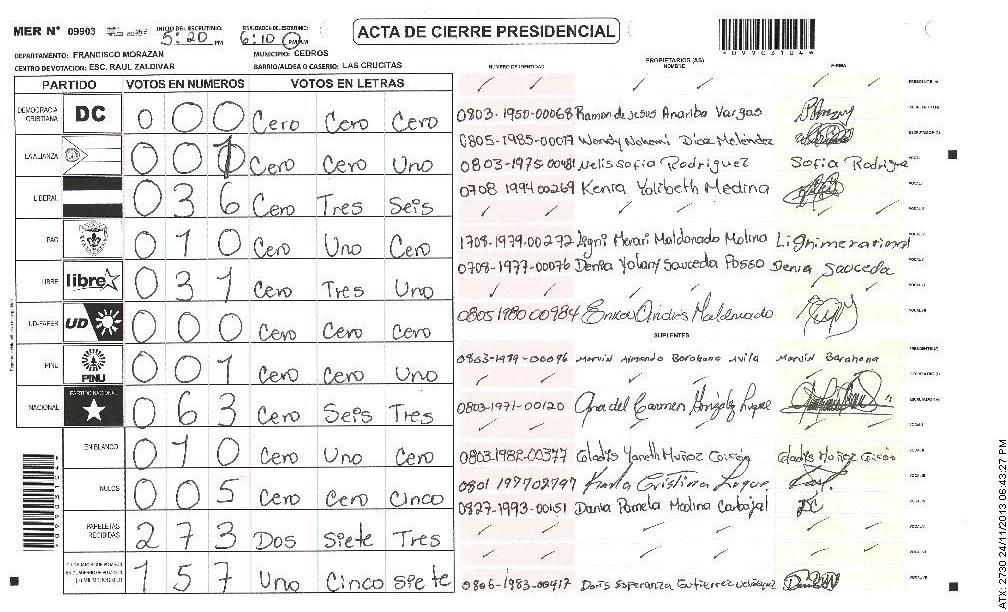 MER N° 09903 INICIO DEL ESCRUTINIO: 5:20 PM FINALIZACION DE ESCRUTINIO: 6:10 PM AM
ACTA DE CIERRE PRESIDENCIAL
*09903104*
DEPARTAMENTO: FRANCISCO MORAZAN MUNICIPIO: CEDROS
CENTRO DE VOTACION: ESC. RAUL ZALDIVAR BARRIO/ALDEA O CASERIO: LAS CRUCITAS
PARTIDO VOTOS EN NUMEROS VOTOS EN LETRAS
DEMOCRACIA CRISTIANA DC 0 0 0 Cero Cero Cero
LA ALIANZA 0 0 1 Cero Cero Uno
LIBERAL 0 3 6 Cero Tres Seis
PAC 0 1 0 Cero Uno Cero
LIBRE libre 0 3 1 Cero Tres Uno
UD-FAPER UD 0 0 0 Cero Cero Cero
PINU PINU 0 0 1 Cero Cero Uno
NACIONAL PARTIDO NACIONAL 0 6 3 Cero Seis Tres
EN BLANCO 0 1 0 Cero Uno Cero
NULOS 0 0 5 Cero Cero Cinco
PAPELETAS RECIBIDAS 2 7 3 Dos Siete Tres
1 5 7 Uno Cinco Siete
NUMERO DE IDENTIDAD PROPIETARIOS (AS) NOMBRE FIRMA
0803-1950-00068 Ramon de Jesus Anariba Vargas
0805-1985-00017 Wendy Nohemi Diaz Melendez
0803-1975-00481 Melissofia Rodriguez Sofia Rodrigue
0708 1994 00269 Kenia Yolibeth Medina
1708-1979-00272 Ligni Merari Maldonado Molina
0708-1977-00076 Denia Yolany Sauceda Posso Denia Sauceda
0805 1980 00984 Maldonado
SUPLENTES
0803-1979-00096 Marvin Armando Barahona Avila Marvin Barahona
0803-1971-00120 Ana del Carmen
0803-1982-00377 Gladys Yaneth Muñoz
0801 197702797 Karla Cristina Luque
0827-1993-00151 Dania Pamela Medina Carbajal
0806-1983-00417 Doris Esperanza Gutierrez
ATX: 2730 24/11/2013 06:43:27 PM